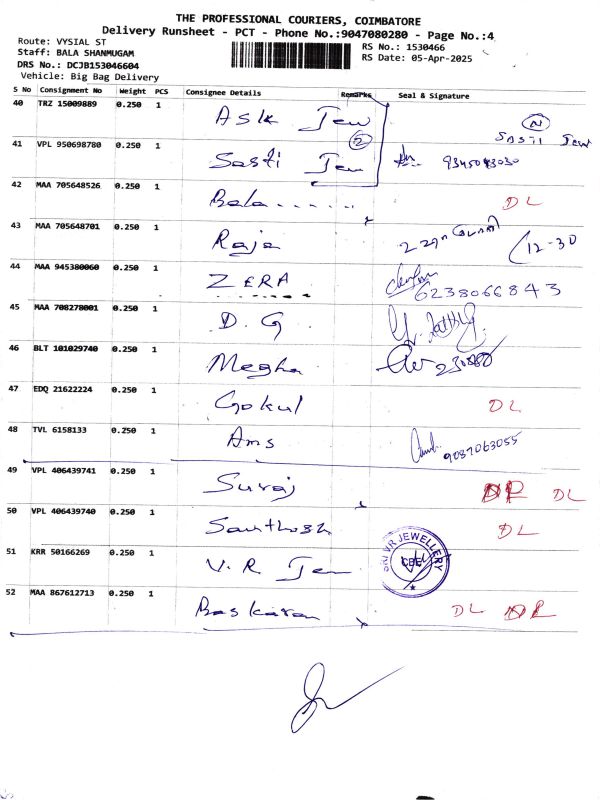 THE PROFESSIONAL COURIERS, COIMBATORE
Delivery Runsheet - PCT - Phone No.:9047080280 - Page No.:4
Route: VYSIAL ST
Staff: BALA SHANMUGAM
DRS No.: DCJB153046604
Vehicle: Big Bag Delivery
RS No.: 1530466
RS Date: 05-Apr-2025
S No Consignment No Weight PCS Consignee Details Remarks Seal & Signature
40 TRZ 15009889 0.250 1 Ask Jew N
41 VPL 950698780 0.250 1 Sasti Jew 2 Sasti Jew
42 MAA 705648526 0.250 1 Bala...... DL
43 MAA 705648701 0.250 1 Raja 12-30
44 MAA 945380060 0.250 1 ZERA 6238066843
45 MAA 708278001 0.250 1 D. G
46 BLT 101029740 0.250 1 Megha
47 EDQ 21622224 0.250 1 Gokul DL
48 TVL 6158133 0.250 1 Ams 9087063055
49 VPL 406439741 0.250 1 Suraj DL
50 VPL 406439740 0.250 1 Santhosh DL
51 KRR 50166269 0.250 1 V. R Jew SRI VR JEWELLERY CBE
52 MAA 867612713 0.250 1 Baskaran DL